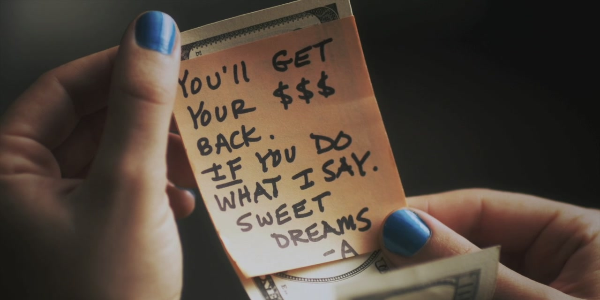 YOU'll GET
YOUR $$$
BACK.
IF YOU DO
WHAT I SAY.
SWEET
DREAMS
-A